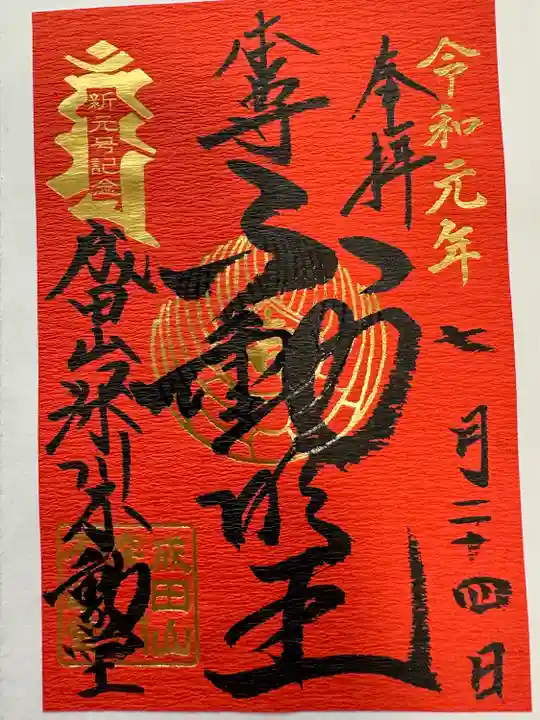 令和元年
七月二十四日
奉拝
本尊
不動明王
新元号記念
成田山深川不動堂
成田山